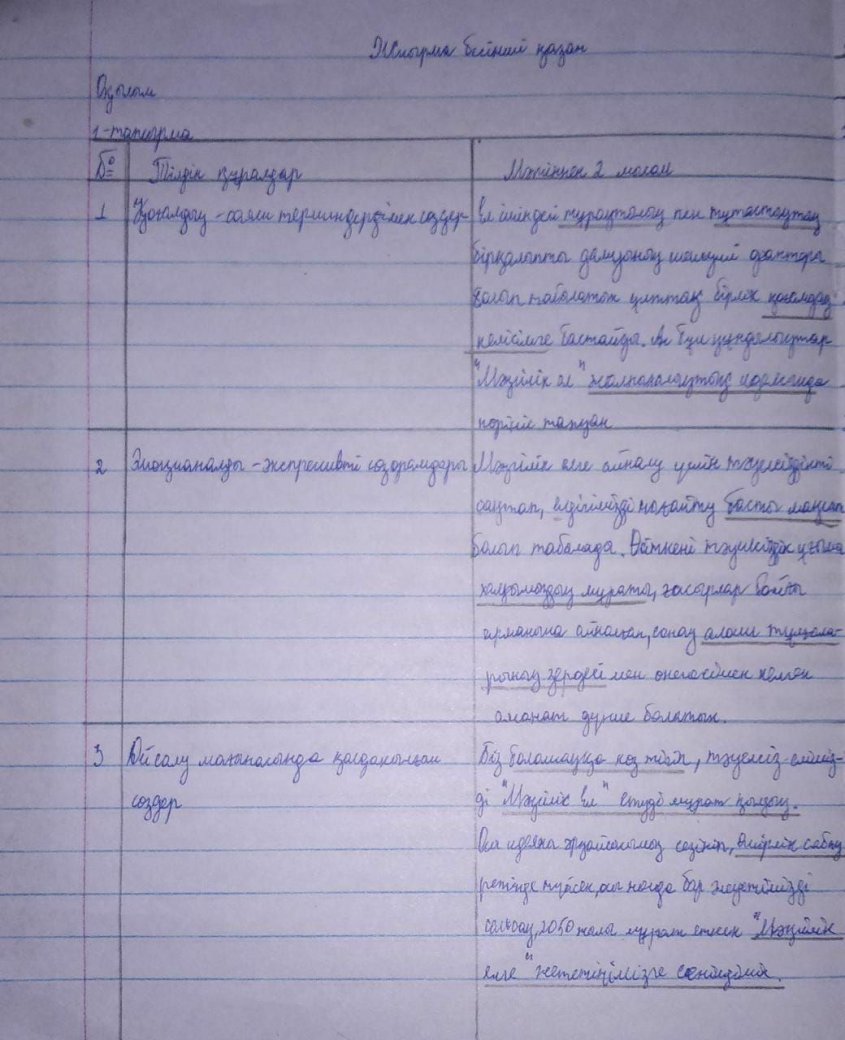 Жиырма бесінші қазан
Оқылым
1-тапсырма
№ Тілдік құралдар Мәтіннен 2 мысал
1 Қоғамдық-саяси терминдер сөздер Ел ішіндегі тұрақтылық пен тұтастықтың
бірқалыпты дамуының шешуші факторы
болып табылатын ұлттық бірлік қоғамдық
келісімге бастайды. Ал бұл құндылықтар
"Мәңгілік ел" жалпыұлттық идеясында
көрініс тапқан
2 Эмоционалды-экспрессивті сөз орамдары Мәңгілік елге айналу үшін тәуелсіздікті
сақтап, елдігімізді нығайту басты мақсат
болып табылады. Өйткені тәуелсіздік ұғымы
халқымыздың мұраты, ғасырлар бойғы
арманына айналған, сонау алаш тұлғала-
рының зердесі мен өнегесімен келген
аманат дүние болатын.
3 Ой салу мағынасында қолданылған Біз болашаққа көз тігіп, тәуелсіз еліміз-
сөздер ді "Мәңгілік Ел" етуді мұрат қылдық.
Осы идеяны сезініп, өмірлік сабақ
ретінде түйсек, сонда бар жігерімізді
салсақ, 2050 жылы мұрат еткен "Мәңгілік
елге" жететінімізге сенімдімін.